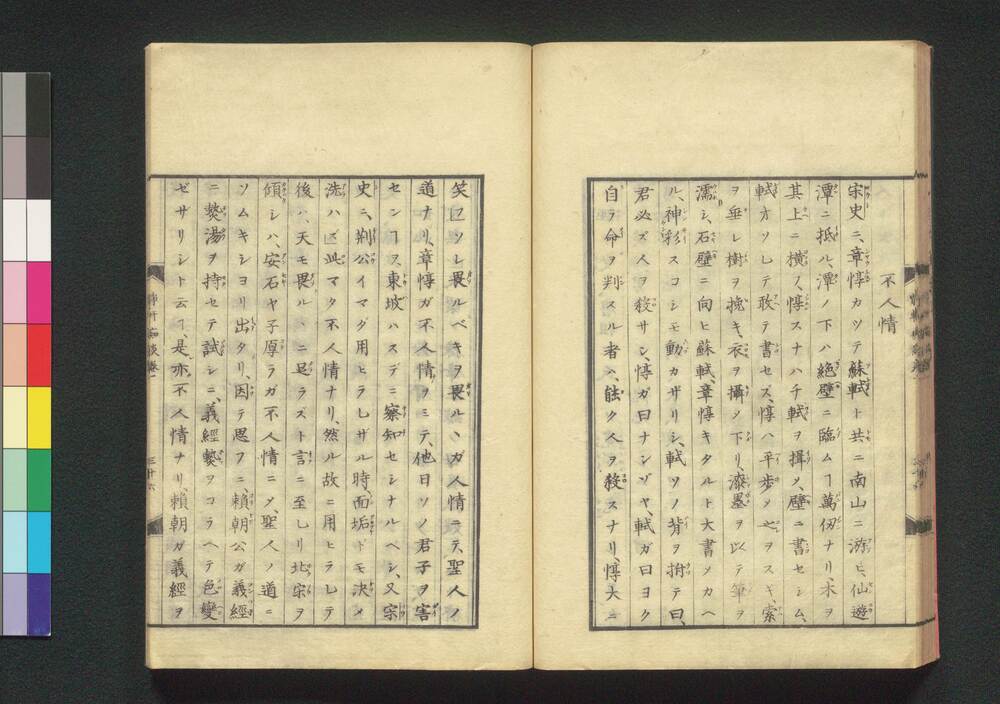 不人情
宋史ニ、章惇カツテ蘇軾ト共ニ南山ニ游ヒ、仙遊
潭ニ抵ル、潭ノ下ハ絶壁ニ臨ムヿ萬仞ナリ、木ヲ
其上ニ橫ヲ、惇スナハチ軾ヲ揖メ、壁ニ書セシム、
軾オソレテ敢テ書セズ、惇ハ平歩メ之ヲスギ、索
ヲ垂レ樹ヲ挽キ、衣ヲ攝メ下リ、漆墨ヲ以テ筆ヲ
濡シ、石壁ニ向ヒ蘇軾、章惇キタルト大書メカヘ
ル、神彩スコシモ動カザリシ、軾ソノ背ヲ拊テ曰、
君必ズ人ヲ殺サン、惇ガ曰ナンゾヤ、軾ガ曰ヨク
自ラ命ヲ判スル者ハ、能ク人ヲ殺スナリ、惇大ニ
笑フソレ畏ルベキヲ畏ルヽガ人情ニテ、聖人ノ
道ナリ、章惇ガ不人情ヲミテ、他日ソノ君子ヲ害
センヿヲ、東坡ハスデニ察知セシナルベシ、又宋
史ニ、荊公イマダ用ヒラレザル時、面垢ドモ決メ
洗ハズ、此マタ不人情ナリ、然ル故ニ用ヒラレテ
後ハ、天モ畏ルヽニ足ラズト言ニ至レリ、北宋ヲ
傾シハ、安石ヤ子厚ラガ不人情ニメ、聖人ノ道ニ
ソムキシヨリ出タリ、因テ思フニ、賴朝公ガ義經
ニ𤍠湯ヲ持セテ試シニ、義經𤍠ヲコラヘテ色變
ゼサリシト云ヿ、是亦不人情ナリ、賴朝ガ義經ヲ